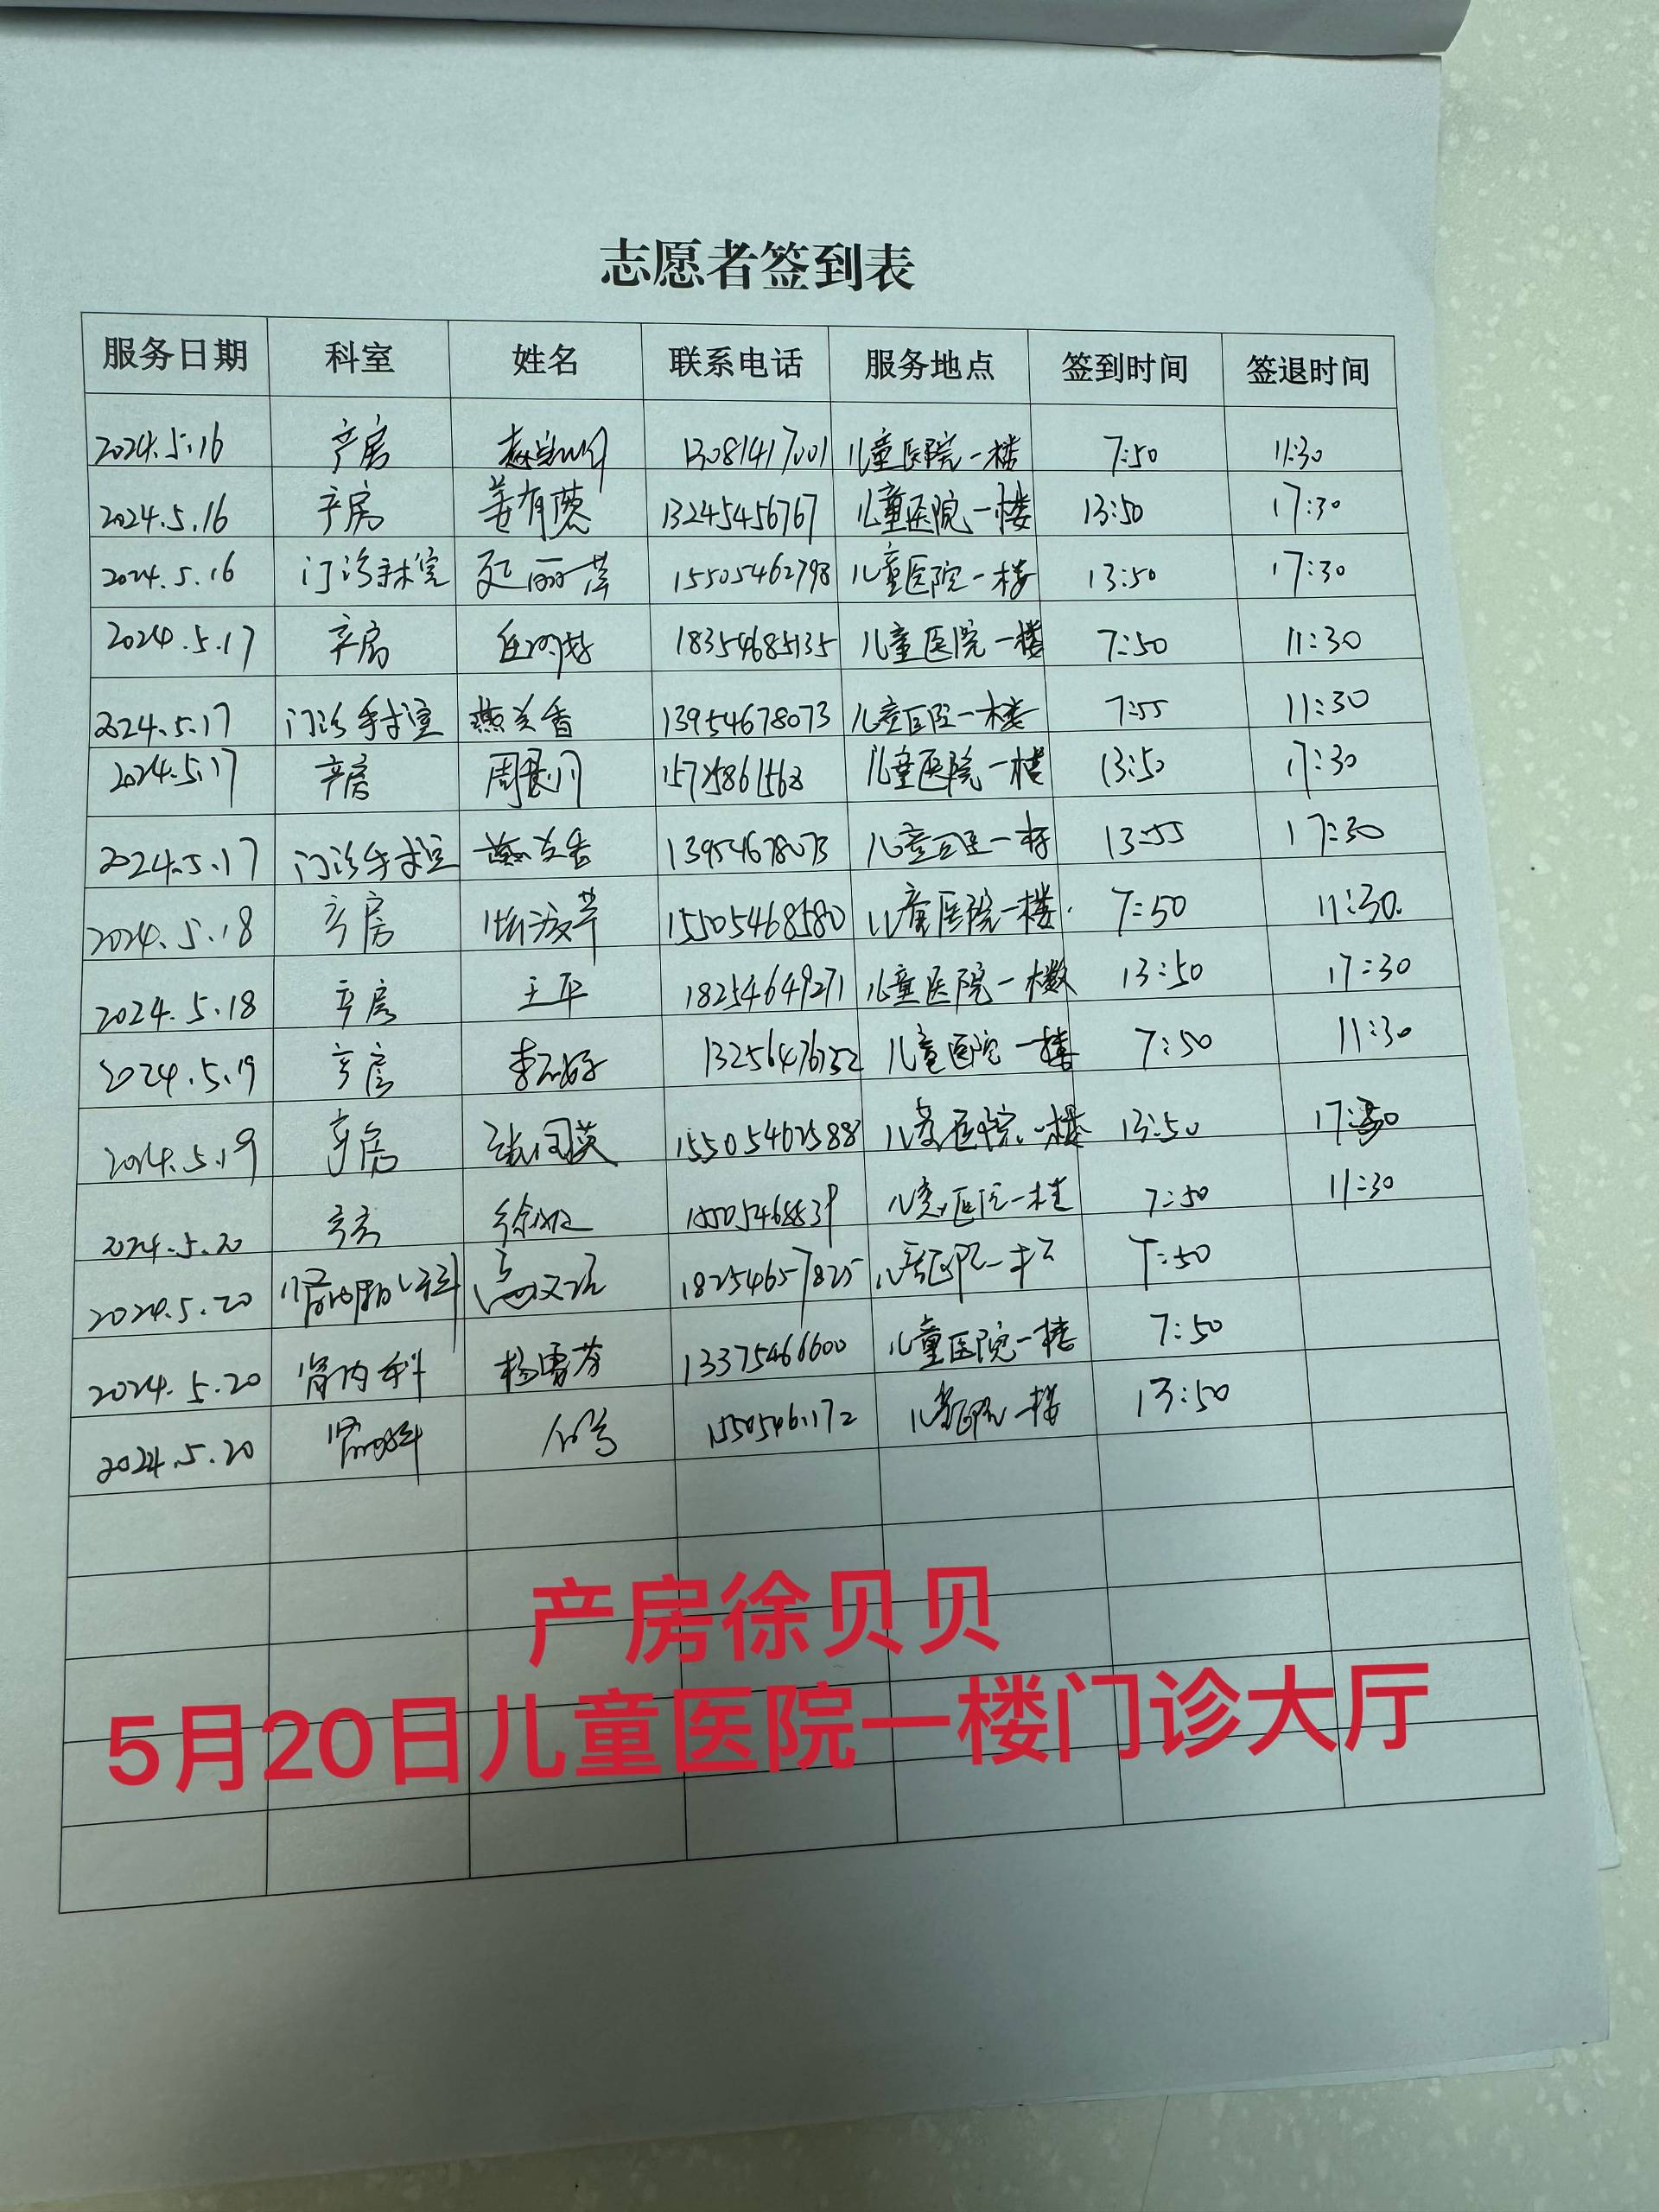 志愿者签到表
服务日期 科室 姓名 联系电话 服务地点 签到时间 签退时间
2024.5.16 产房 13081417001 儿童医院一楼 7:50 11:30
2024.5.16 产房 姜有慧 13245456767 儿童医院一楼 13:50 17:30
2024.5.16 门诊手术室 15505462798 儿童医院一楼 13:50 17:30
2024.5.17 产房 18354685135 儿童医院一楼 7:50 11:30
2024.5.17 门诊手术室 燕兰香 13954678073 儿童医院一楼 7:55 11:30
2024.5.17 产房 周景川 儿童医院一楼 13:50 17:30
2024.5.17 门诊手术室 燕兰香 13954678073 儿童医院一楼 13:55 17:30
2024.5.18 产房 15505468580 儿童医院一楼. 7:50 11:30.
2024.5.18 产房 王平 18254649271 儿童医院一楼 13:50 17:30
2024.5.19 产房 13256476152 儿童医院一楼 7:50 11:30
2024.5.19 产房 15505462588 儿童医院一楼 13:50 17:30
2024.5.20 产房 徐贝贝 15505468839 儿童医院一楼 7:50 11:30
2024.5.20 18254657825 儿童医院一楼 7:50
2024.5.20 肾内科 杨雪芬 13375466600 儿童医院一楼 7:50
2024.5.20 肾内科 儿童医院一楼 13:50
产房徐贝贝
5月20日儿童医院一楼门诊大厅